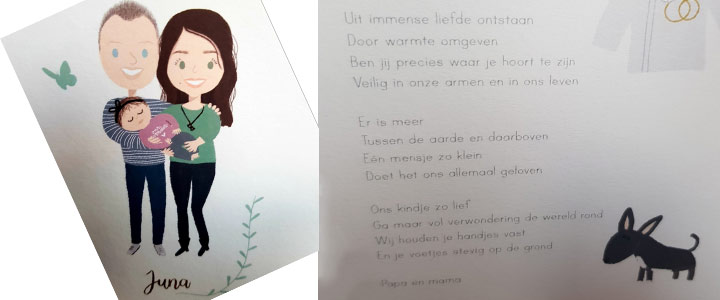 Juna
Uit immense liefde ontstaan
Door warmte omgeven
Ben jij precies waar je hoort te zijn
Veilig in onze armen en in ons leven
Er is meer
Tussen de aarde en daarboven
Eén mensje zo klein
Doet het ons allemaal geloven
Ons kindje zo lief
Ga maar vol verwondering de wereld rond
Wij houden je handjes vast
En je voetjes stevig op de grond
Papa en mama